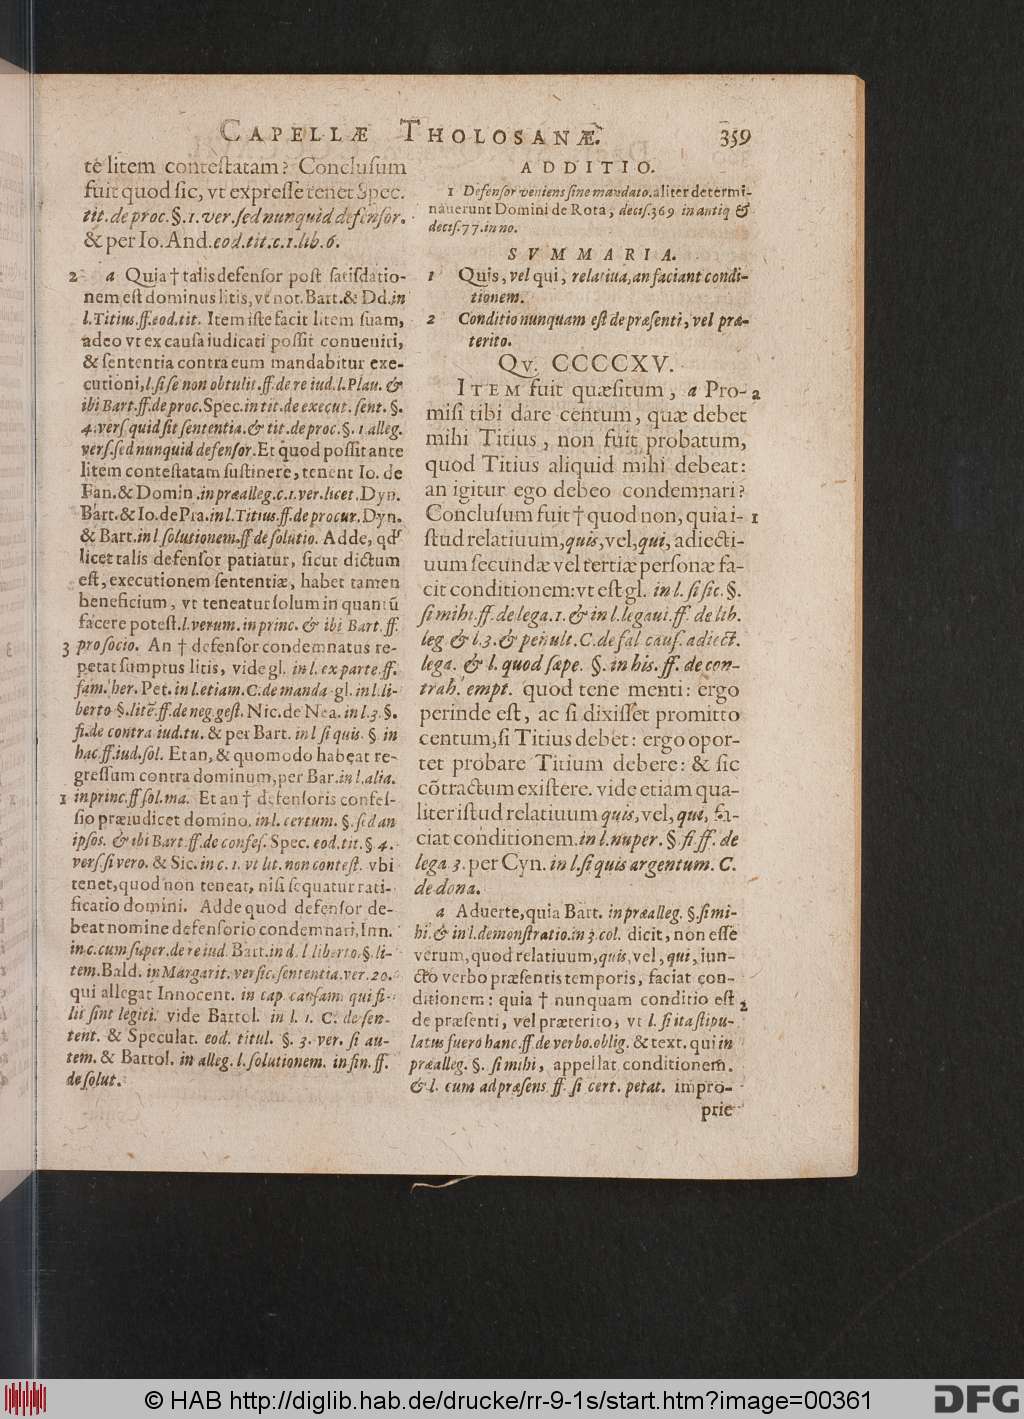 CAPELLÆ THOLOSANÆ. 359
tē litem contestatam? Conclusum
fuit quod sic, vt expresse tenet Spec.
tit. de proc. §. 1. ver. sed nunquid defensor.
& per Io. And. eod. tit. c. 1. lib. 6.
2 a Quia † talis defensor post satisdatio-
nem est dominus litis, vt not. Bart. & Dd. in
l. Titius. ff. eod. tit. Item iste facit litem suam,
adeo vt ex causa iudicati possit conueniri,
& sententia contra eum mandabitur exe-
cutioni, l. si se non obtulit. ff. de re iud. l. Plau. &
ibi Bart. ff. de proc. Spec. in tit. de execut. sent. §.
4. vers. quid sit sententia. & tit. de proc. §. 1. alleg.
vers. sed nunquid defensor. Et quod possit ante
litem contestatam sustinere, tenent Io. de
Fan. & Domin. in præalleg. c. 1. ver. licet. Dyn.
Bart. & Io. de Pra. in l. Titius. ff. de procur. Dyn.
& Bart. in l. solutionem. ff de solutio. Adde, qd'
licet talis defensor patiatur, sicut dictum
est, executionem sententiæ, habet tamen
beneficium, vt teneatur solum in quantū
facere potest. l. verum. in princ. & ibi Bart. ff.
3 pro socio. An † defensor condemnatus re-
petat sumptus litis, vide gl. in l. ex parte. ff.
fam. her. Pet. in l. etiam. C. de manda. gl. in l. li-
berto. §. litē. ff. de neg. gest. Nic. de Nea. in l. 3. §.
fi. de contra iud. tu. & per Bart. in l si quis. §. in
hac. ff. iud. sol. Et an, & quomodo habeat re-
gressum contra dominum, per Bar. in l. alia.
1 in princ. ff sol. ma. Et an † defensoris confes-
sio præiudicet domino, in l. certum. §. sed an
ipsos. & ibi Bart. ff. de confes. Spec. eod. tit. § 4.
vers. si vero. & Sic. in c. 1. vt lit. non contest. vbi
tenet, quod non teneat, nisi sequatur rati-
ficatio domini. Adde quod defensor de-
beat nomine defensorio condemnari, Inn.
in c. cum super. de re iud. Bart. in d. l liberto. §. li-
tem. Bald. in Margarit. versic. sententia. ver. 20.
qui allegat Innocent. in cap. causam. qui fi-
lii sint legiti. vide Bartol. in l. 1. C. de sen-
tent. & Speculat. eod. titul. §. 3. ver. si au-
tem. & Bartol. in alleg. l. solutionem. in fin. ff.
de solut.
ADDITIO.
1 Defensor veniens sine mandato. aliter determi-
nauerunt Domini de Rota, decis. 369 in antiq &
decis. 77. in no.
SVMMARIA.
1 Quis, vel qui, relatiua, an faciant condi-
tionem.
2 Conditio nunquam est de præsenti, vel præ-
terito.
QV. CCCCXV.
ITEM fuit quæsitum, a Pro- 2
misi tibi dare centum, quæ debet
mihi Titius, non fuit probatum,
quod Titius aliquid mihi debeat:
an igitur ego debeo condemnari?
Conclusum fuit † quod non, quia i- 1
stud relatiuum, quis, vel, qui, adiecti-
uum secundæ vel tertiæ personæ fa-
cit conditionem: vt est gl. in l. si sic. §.
si mihi. ff. de lega. 1. & in l. legaui. ff. de lib.
leg & l. 3. & penult. C. de fal caus. adiect.
lega. & l. quod sæpe. §. in his. ff. de con-
trah. empt. quod tene menti: ergo
perinde est, ac si dixisset promitto
centum, si Titius debet: ergo opor-
tet probare Titium debere: & sic
cōtractum existere. vide etiam qua-
liter istud relatiuum quis, vel, qui, fa-
ciat conditionem. in l. nuper. §. fi. ff. de
lega 3. per Cyn. in l. si quis argentum. C.
de dona.
a Aduerte, quia Bart. in præalleg. §. si mi-
hi. & in l. demonstratio. in 3. col. dicit, non esse
verum, quod relatiuum, quis, vel, qui, iun-
cto verbo præsentis temporis, faciat con-
ditionem: quia † nunquam conditio est 2
de præsenti, vel præterito, vt l. si ita stipu-
latus fuero hanc. ff. de verbo. oblig. & text. qui in
præalleg. §. si mihi, appellat conditionem.
& l. cum ad præsens. ff. si cert. petat. impro-
prie
© HAB http://diglib.hab.de/drucke/rr-9-1s/start.htm?image=00361
DFG